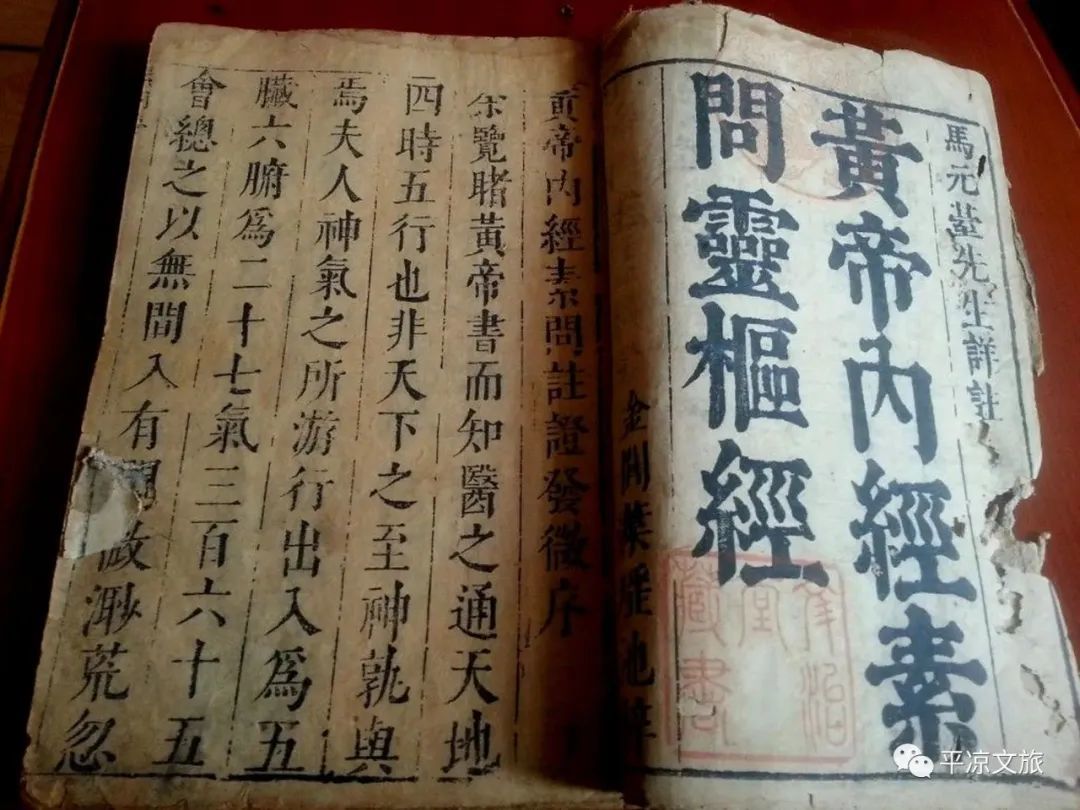 馬元臺先生詳註
黃帝內經素
問靈樞經
金閶葉 池梓
藏書
堂
黃帝內經素問註證發微序
余覽睹黃帝書而知醫之通天地
四時五行也非天下之至神孰與
焉夫人神氣之所游行出入為五
臟六腑為二十七氣三百六十五
會總之以無間入有間故渺荒忽
平凉文旅